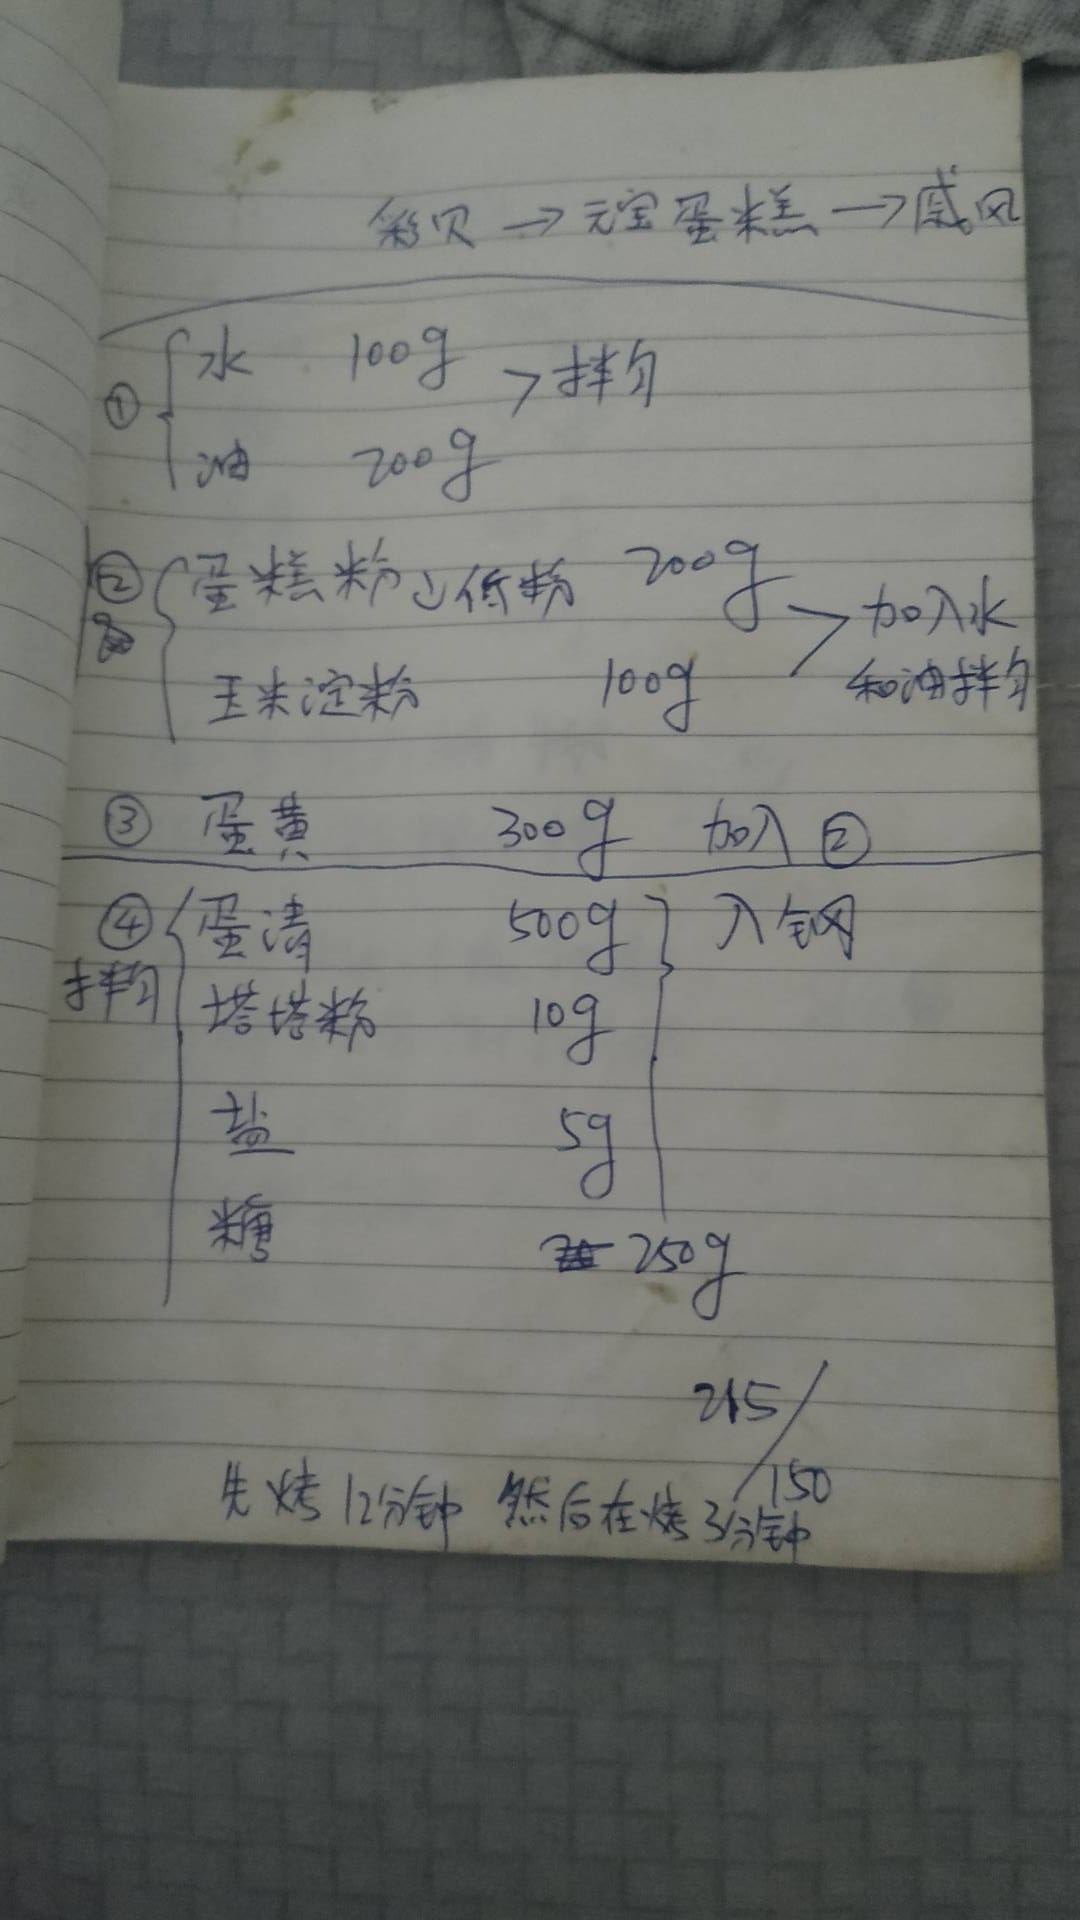 彩贝 → 元宝蛋糕 → 戚风
① 水 100g > 拌匀
油 200g
② 蛋糕粉 低粉 200g > 加入水
玉米淀粉 100g 和油拌匀
③ 蛋黄 300g 加入②
④ 蛋清 500g 入
拌匀 塔塔粉 10g
盐 5g
糖 250g
215/150
先烤12分钟 然后在烤3分钟